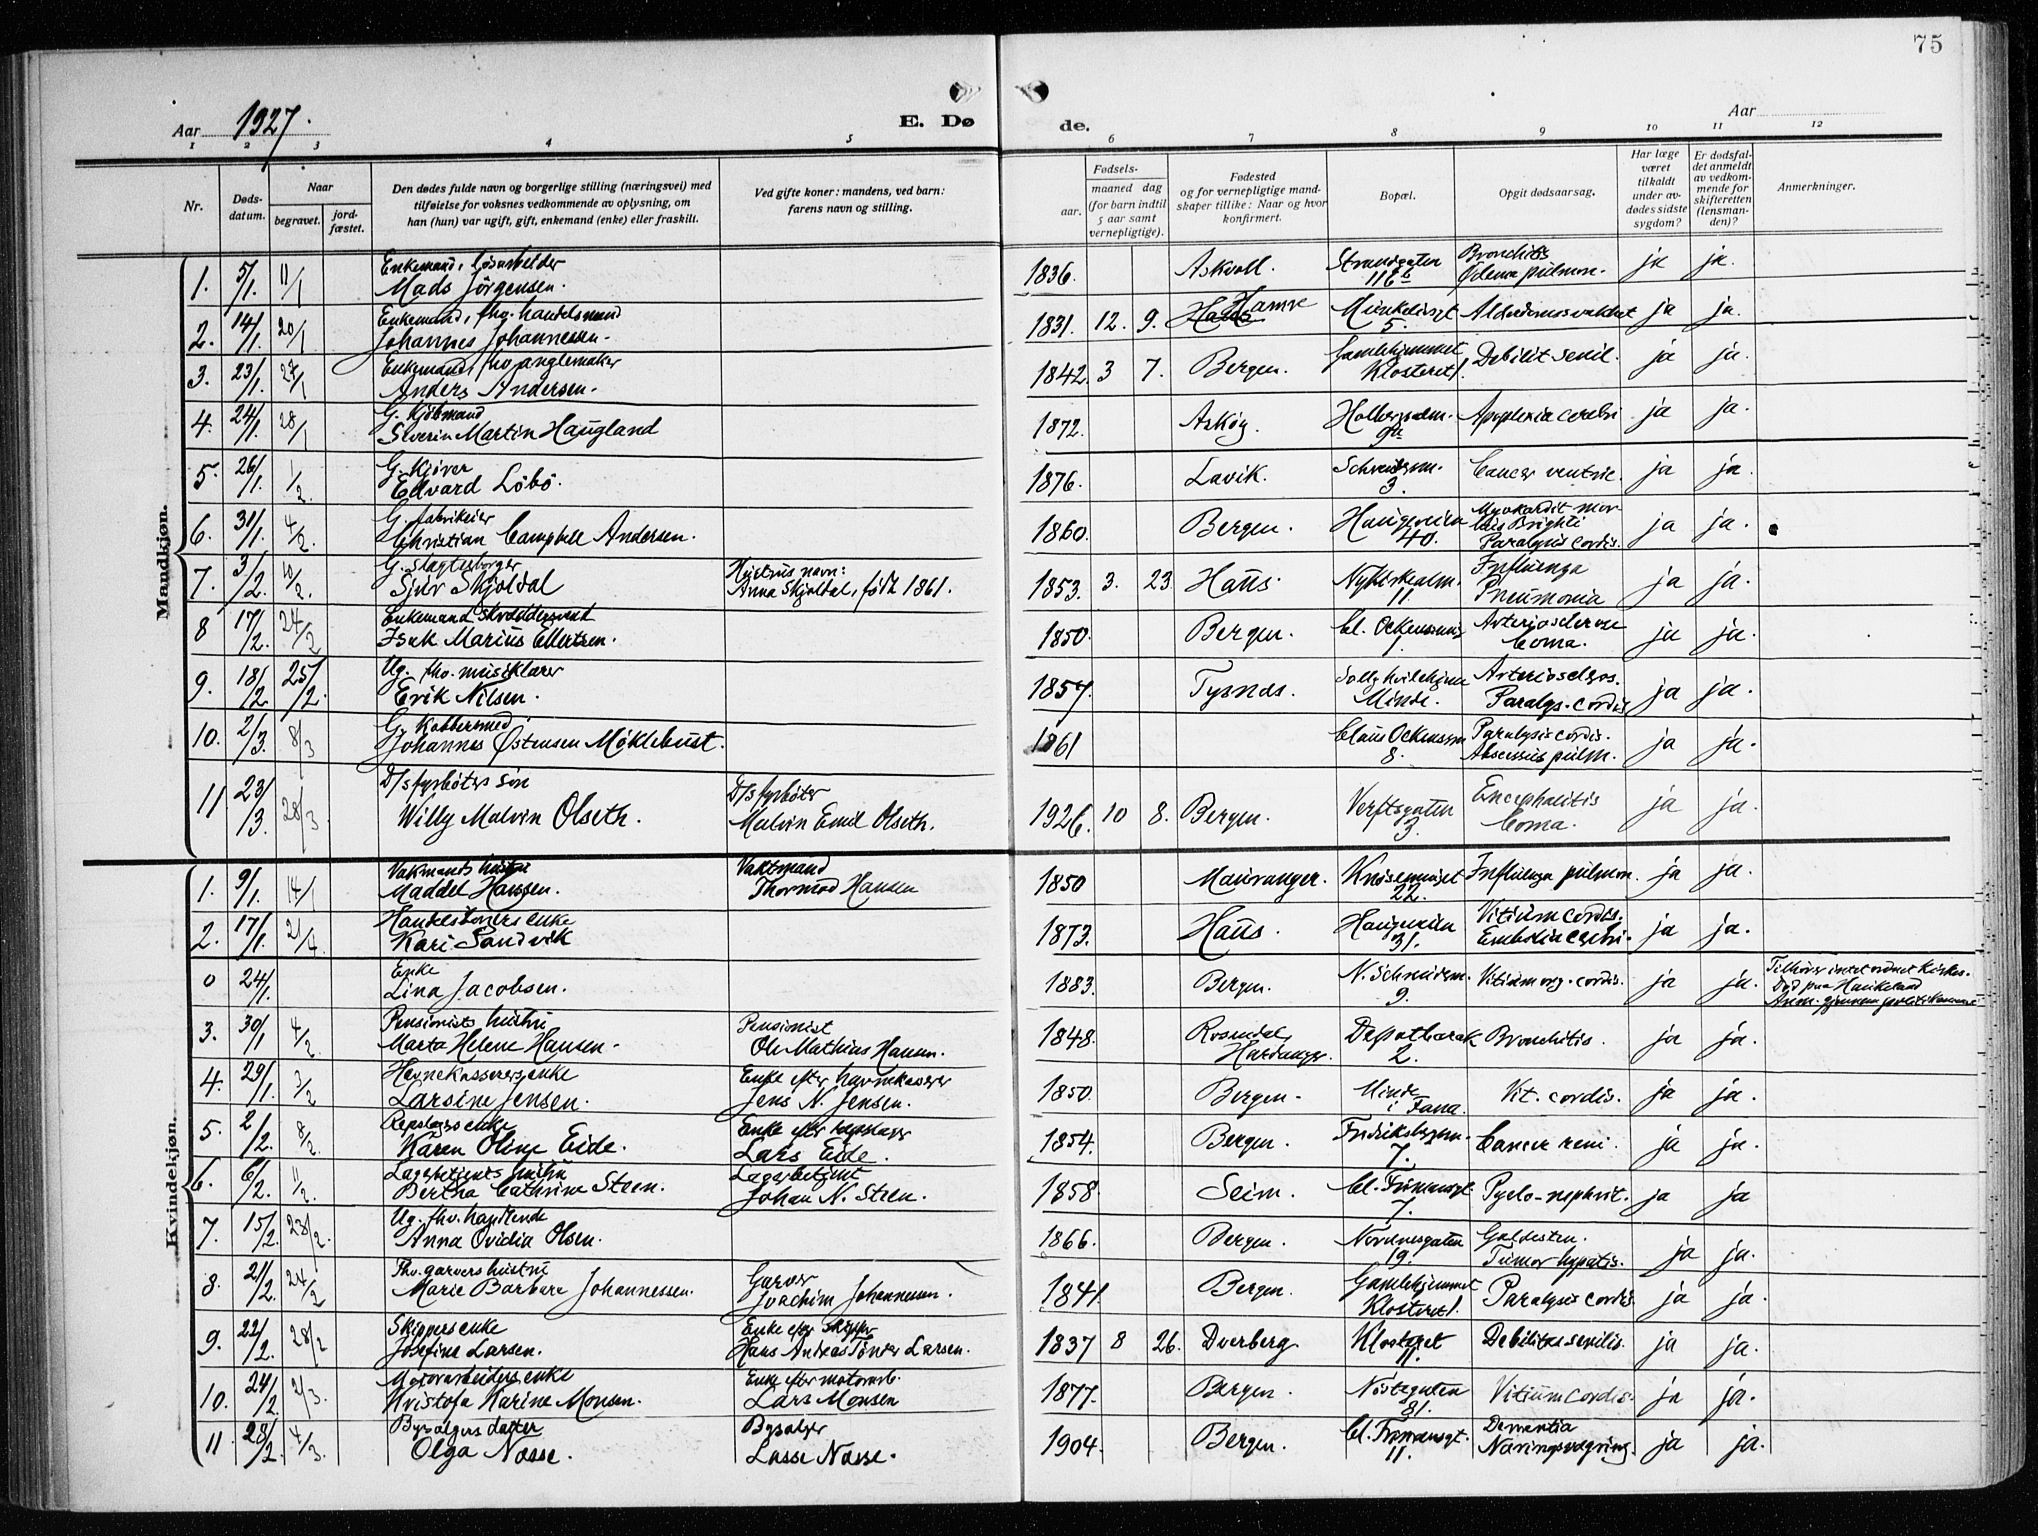 75
Aar 1927.
E. Dø
de.
Aar
1 2 3 4 5 6 7 8 9 10 11 12
Nr.
Døds-
datum.
Naar
begravet.
jord-
fæstet.
Den dødes fulde navn og borgerlige stilling (næringsvei) med
tilføielse for voksnes vedkommende av oplysning, om
han (hun) var ugift, gift, enkemand (enke) eller fraskilt.
Ved gifte koner: mandens, ved barn:
farens navn og stilling.
Fødsels-
aar.
maaned dag
(for barn indtil
5 aar samt
vernepligtige).
Fødested
og for vernepligtige mand-
skaper tillike: Naar og hvor
konfirmert.
Bopæl.
Opgit dødsaarsag.
Har læge
været
tilkaldt
under av-
dødes sidste
sygdom?
Er dødsfal-
det anmeldt
av vedkom-
mende for
skifteretten
(lensman-
den)?
Anmerkninger.
Mandkjøn.
1. 5/1. 11/1 Enkemand, løsarbeider
Mads Jörgensen. 1836. Askvoll. Strandgaten
116b Bronchitis
Ödema pulmon. ja ja.
2. 14/1. 20/1 Enkemand, fhv. handelsmand
Johannes Johannessen. 1831. 12. 9. Hamre 5. ja ja.
3. 23/1. 27/1 Enkemand,
Anders Andersen. 1842. 3 7. Bergen. Gamlehjemmet
Klosteret 1. Debilit senil. ja ja.
4. 24/1. 28/1 G. Kjöbmand
Severin Martin Haugland 1872. Asköy. 9a Apoplexia cerebri ja ja.
5. 26/1. 1/2. G. Kjører
Edvard Löbö. 1876. Lavik. 3. Cancer ventric. ja ja.
6. 31/1. 4/2. G. fabrikeier
Christian Campbell Andersen. 1860. Bergen. Haugeveien
40. Myokardit mor-
bus Brighti
Paralysis cordis. ja ja.
7. 3/2. 10/2. G. Slagterborger
Sjur Skjoldal Hustrus navn:
Anna Skjoldal, født 1861. 1853. 3. 23. Haus. 11. Influenza
Pneumonia ja ja.
8 17/2. 24/2 Enkemand skræddersvend
Isak Marius Ellertsen. 1850. Bergen. Cl. Ockenssmug
1. Arteriosclerose
Coma. ja ja.
9. 18/2. 25/2. Ug. fhv. musiklærer
Erik Nilsen. 1857. Tysnes. Solly Hvilehjem
Minde. Arterioscleros.
Paralys. cordis ja ja.
10. 2/3. 8/3 G. Kobbersmed.
Johannes Östensen Möklebust. 1861 Claus Ockenssm
8. Paralysis cordis.
Abscessus pulm. ja ja.
11 23/13. 28/3 D/s fyrböters sön
Willy Malvin Olseth. D/s fyrböter
Malvin Emil Olseth. 1926. 10 8. Bergen. Verftsgaten
3. Encephalitis
Coma. ja ja.
Kvindekjøn.
1. 9/1. 14/1 Vakmands hustru
Maddel Hansen. Vaktmand
Thormod Hansen 1850 Mauranger. Knösesmuget
22. Influenza pulmon. ja ja.
2. 17/1. 21/4. enke
Kari Sandvik 1873. Haus. Haugeveien
31. Vitium cordis.
Embolia cerebri. ja ja.
0 24/1. Enke
Lina Jacobsen. 1883. Bergen. N.
9. Vitium org. cordis. ja ja. Tilhörer intet ordnet kirkes.
Död paa Haukeland
3. 30/1 4/2 Pensionists hustru
Marta Helene Hansen. Pensionist
Ole Mathias Hansen. 1848. Rosendal
Hardanger. 2. Bronchitis. ja ja.
4. 29/1. 3/2 Havnekasserers enke
Larsine Jensen. Enke efter havnekasserer
Jens N. Jensen. 1850. Bergen. Minde
i Fana. Vit. cordis. ja ja.
5. 2/2. 8/2. Repslagers enke
Karen Oline Eide. Enke efter repslager
Lars Eide. 1854. Bergen. 7. Cancer reni. ja ja.
6. 6/2. 11/2. Lagerbetjents hustru
Bertha Cathrine Steen. Lagerbetjent
Johan N. Steen. 1858. Seim. 7. Pyelo-nephrit. ja ja
7. 15/2. 23/2. Ug. fhv. handlende
Anna Ovidia Olsen. 1866. Bergen. Nordnesgaten
19. Galdesten.
Tumor hypatis. ja ja.
8. 21/2. 24/2 Fhv. garvers hustru
Marie Barbara Johannessen. Garver
Joachim Johannessen. 1841. Bergen. Gamlehjemmet
Klosteret 1. Paralysis cordis. ja ja.
9. 22/2. 28/2 Skippers enke
Josefine Larsen. Enke efter skipper
Hans Andreas Tönder Larsen. 1837 8 26. Dverberg Klosteret
11. Debilitas senilis. ja ja.
10. 24/2. 2/3. Motorarbeiders enke
Kristofa Karine Monsen. Enke efter motorarb.
Lars Monsen 1877. Bergen. Nöstegaten
81. Vitium cordis. ja ja.
11. 28/2. 4/3. Bysælgers datter
Olga Næsse. Bysælger
Lasse Næsse. 1904. Bergen. 11. Dementia
Næringsvægring. ja ja.